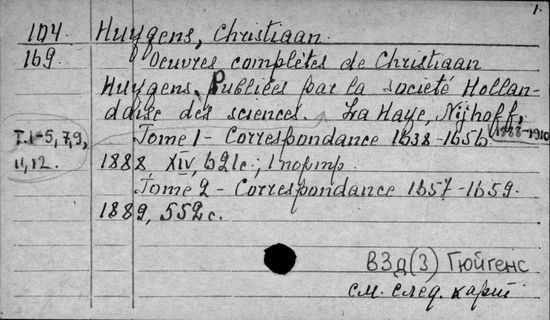 1.
104. Huygens, Christiaan.
169. Oeuvres complètes de Christiaan
Huygens. Publiées par la société Hollan-
daise des sciences. La Haye, Nijhoff,
1888-1910
T.1-5, 7,9,
11,12.
Tome 1 - Correspondance 1638-1656.
1888, XIV, 621с., 1 портр.
Tome 2 - Correspondance 1657-1659.
1889, 552с.
В3д(3) Гюйгенс
см. след. карт